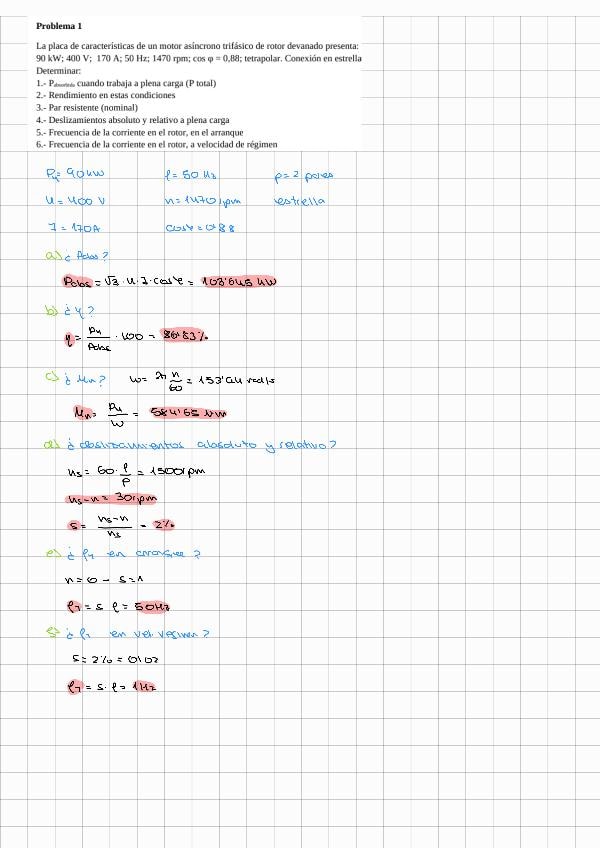 Problema 1
La placa de características de un motor asíncrono trifásico de rotor devanado presenta:
90 kW; 400 V; 170 A; 50 Hz; 1470 rpm; cos φ = 0,88; tetrapolar. Conexión en estrella
Determinar:
1.- Pabsorbida cuando trabaja a plena carga (P total)
2.- Rendimiento en estas condiciones
3.- Par resistente (nominal)
4.- Deslizamientos absoluto y relativo a plena carga
5.- Frecuencia de la corriente en el rotor, en el arranque
6.- Frecuencia de la corriente en el rotor, a velocidad de régimen
Pu = 90 kW f = 50 Hz p = 2 pares
U = 400 V n = 1470 rpm estrella
I = 170A cosφ = 0'88
a) ¿Pabs?
Pabs = √3 · U · I · cosφ = 103'645 kW
b) ¿η?
η = Pu/Pabs · 100 = 86'83%
c) ¿Mn? ω = 2π n/60 = 153'94 rad/s
Mn = Pu/ω = 584'65 Nm
d) ¿deslizamientos absoluto y relativo?
ns = 60 · f/p = 1500rpm
ns - n = 30rpm
s = ns-n/ns = 2%
e) ¿fr en arranque?
n = 0 → s = 1
fr = s · f = 50Hz
f) ¿fr en vel. regimen?
s = 2% = 0'02
fr = s · f = 1Hz